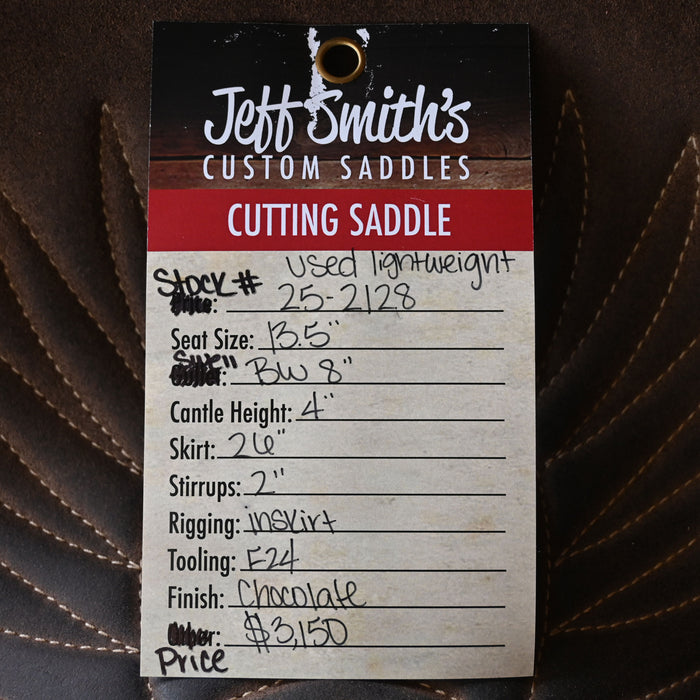 Jeff Smith's
CUSTOM SADDLES
CUTTING SADDLE
used lightweight
Stock #: 25-2128
Seat Size: 13.5"
BW 8"
Cantle Height: 4"
Skirt: 26"
Stirrups: 2"
Rigging: inskirt
Tooling: F24
Finish: Chocolate
$3,150
Price